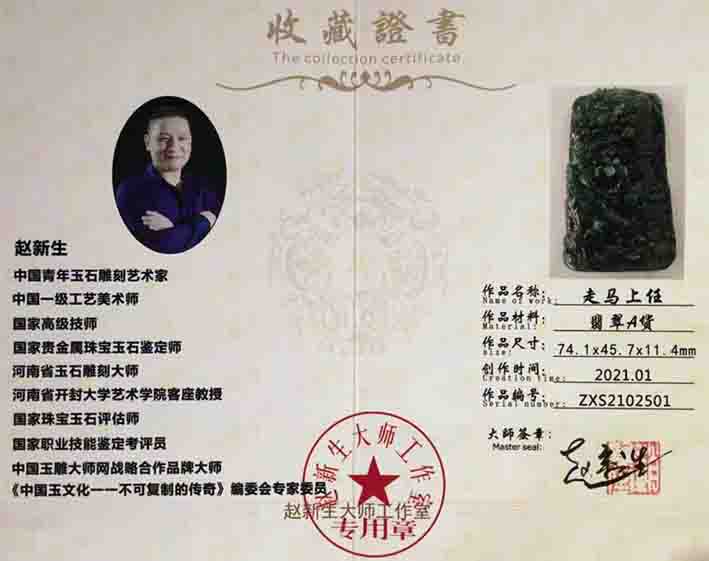 收藏證書
The collection certificate
赵新生
中国青年玉石雕刻艺术家
中国一级工艺美术师
国家高级技师
国家贵金属珠宝玉石鉴定师
河南省玉石雕刻大师
河南省开封大学艺术学院客座教授
国家珠宝玉石评估师
国家职业技能鉴定考评员
中国玉雕大师网战略合作品牌大师
《中国玉文化一一不可复制的传奇》编委会专家委员
作品名称: 走马上任
Name of work:
作品材料: 翡翠A货
Material:
作品尺寸: 74.1x45.7x11.4mm
size:
创作时间: 2021.01
Creation time:
作品编号: ZXS2102501
Serial number:
大師签章:
Master seal:
赵新生
赵新生大师工作室
赵新生大师工作室
专用章